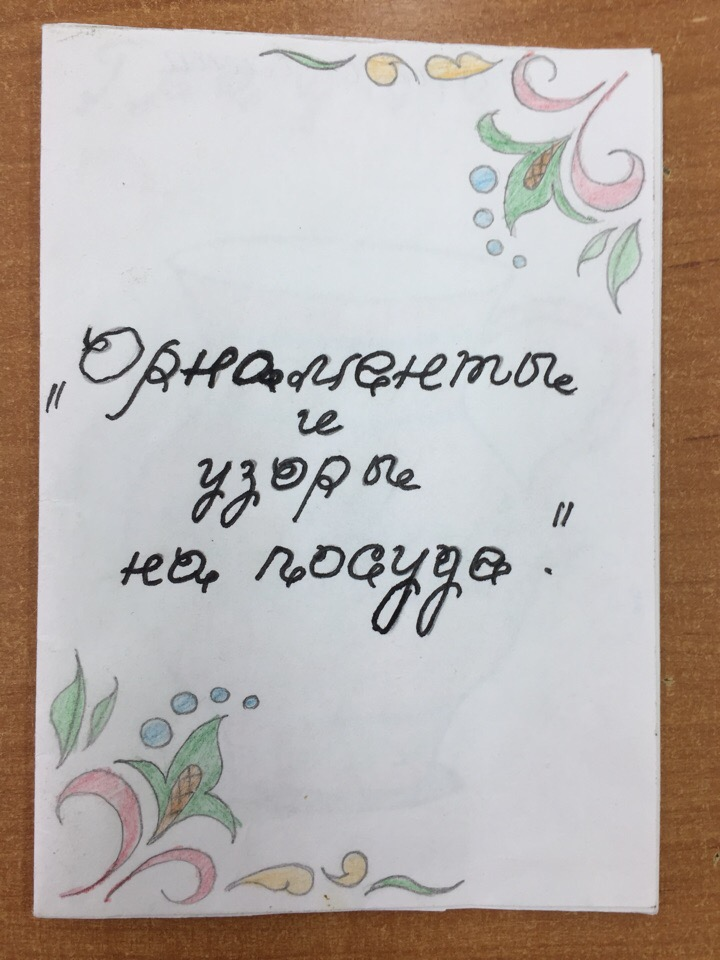 „Орнаменты
и
узоры
на посуде."